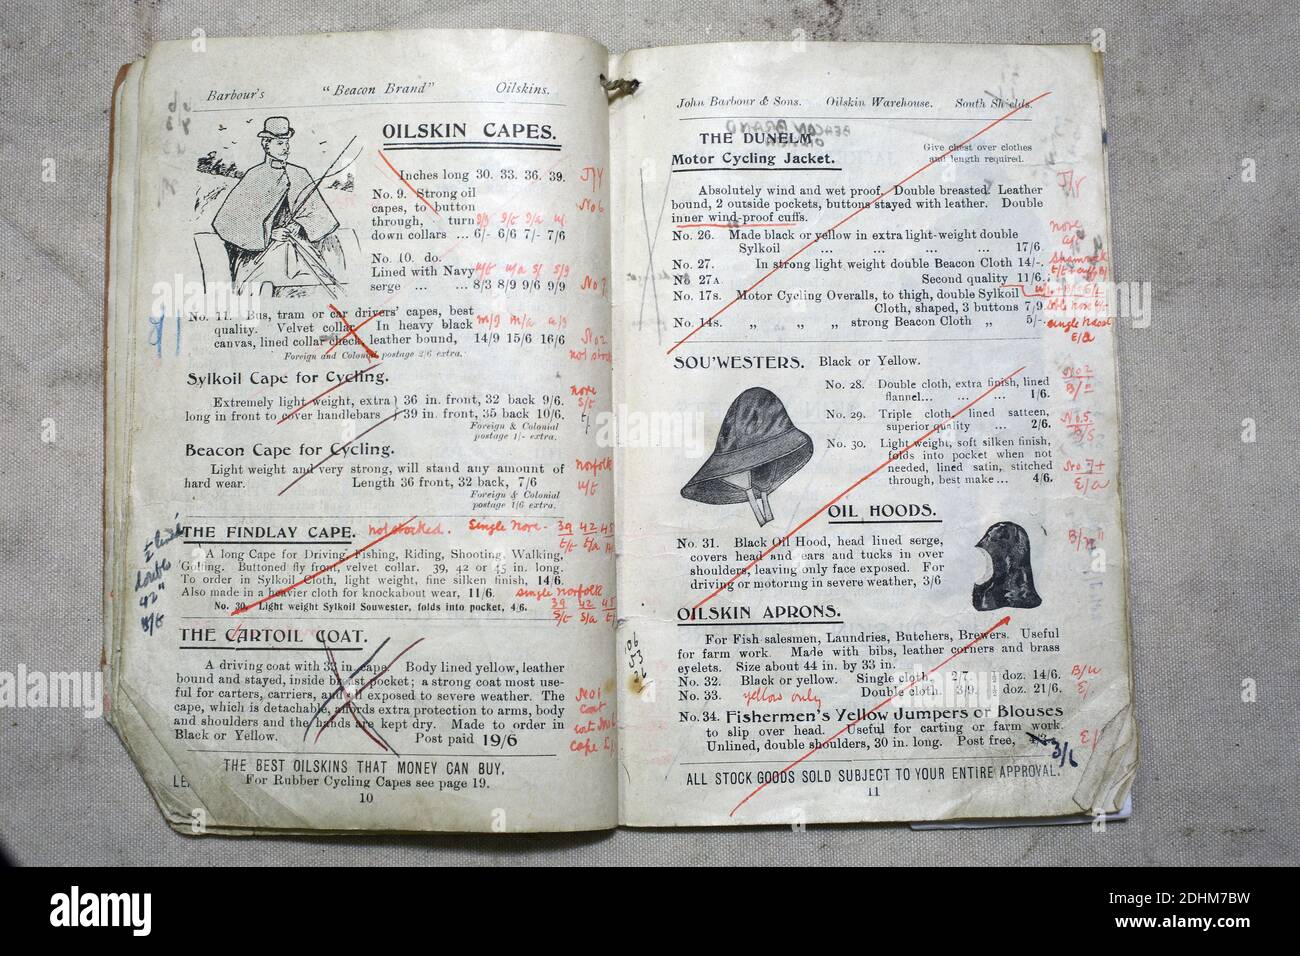 Barbour's "Beacon Brand" Oilskins.
OILSKIN CAPES.
Inches long 30. 33. 36. 39.
No. 9. Strong oil
capes, to button
through, turn
down collars ... 6/- 6/6 7/- 7/6
No. 10. do.
Lined with Navy
serge ... 8/3 8/9 9/6 9/9
No. 11. Bus, tram or car drivers' capes, best
quality. Velvet collar. In heavy black
canvas, lined collar check, leather bound, 14/9 15/6 16/6
Foreign and Colonial postage 2/6 extra.
Sylkoil Cape for Cycling.
Extremely light weight, extra } 36 in. front, 32 back 9/6.
long in front to cover handlebars } 39 in. front, 35 back 10/6.
Foreign & Colonial
postage 1/- extra.
Beacon Cape for Cycling.
Light weight and very strong, will stand any amount of
hard wear. Length 36 front, 32 back, 7/6
Foreign & Colonial
postage 1/6 extra.
THE FINDLAY CAPE. not stocked. Single Nore - 39 42 45
A long Cape for Driving, Fishing, Riding, Shooting, Walking,
Golfing. Buttoned fly front, velvet collar. 39, 42 or 45 in. long.
To order in Sylkoil Cloth, light weight, fine silken finish, 14/6.
Also made in a heavier cloth for knockabout wear, 11/6. single Norfolk
No. 30. Light weight Sylkoil Souwester, folds into pocket, 4/6. 39 42 45
THE CARTOIL COAT.
A driving coat with 33 in. cape. Body lined yellow, leather
bound and stayed, inside breast pocket; a strong coat most use-
ful for carters, carriers, and all exposed to severe weather. The
cape, which is detachable, affords extra protection to arms, body
and shoulders and the hands are kept dry. Made to order in
Black or Yellow. Post paid 19/6
THE BEST OILSKINS THAT MONEY CAN BUY.
For Rubber Cycling Capes see page 19.
10
91
J/Y
No 6
No 9
No 2
not stocked
nore
S/t
norfolk
u/t
No 1
coat
cape
double
42"
John Barbour & Sons. Oilskin Warehouse. South Shields.
THE DUNELM
Motor Cycling Jacket.
Give chest over clothes
and length required.
Absolutely wind and wet proof. Double breasted. Leather
bound, 2 outside pockets, buttons stayed with leather. Double
inner wind-proof cuffs.
No. 26. Made black or yellow in extra light-weight double
Sylkoil ... ... ... ... 17/6.
No. 27. In strong light weight double Beacon Cloth 14/-.
No 27A. Second quality 11/6.
No. 17s. Motor Cycling Overalls, to thigh, double Sylkoil
Cloth, shaped, 3 buttons 7/9.
No. 14s. „ „ „ „ strong Beacon Cloth „ 5/-.
SOU'WESTERS. Black or Yellow.
No. 28. Double cloth, extra finish, lined
flannel... ... ... 1/6.
No. 29. Triple cloth, lined satteen,
superior quality ... 2/6.
No. 30. Light weight, soft silken finish,
folds into pocket when not
needed, lined satin, stitched
through, best make ... 4/6.
OIL HOODS.
No. 31. Black Oil Hood, head lined serge,
covers head and ears and tucks in over
shoulders, leaving only face exposed. For
driving or motoring in severe weather, 3/6
OILSKIN APRONS.
For Fish salesmen, Laundries, Butchers, Brewers. Useful
for farm work. Made with bibs, leather corners and brass
eyelets. Size about 44 in. by 33 in.
No. 32. Black or yellow. Single cloth. 2/7. ½ doz. 14/6.
No. 33. yellow only Double cloth. 3/9. ½ doz. 21/6.
No. 34. Fishermen's Yellow Jumpers or Blouses
to slip over head. Useful for carting or farm work.
Unlined, double shoulders, 30 in. long. Post free, 4/3 3/6
ALL STOCK GOODS SOLD SUBJECT TO YOUR ENTIRE APPROVAL.
11
J/Y
nore
shamrock
single nore
E/a
No 2
B/n
No. 5.
B/S
No 7 +
E/a
B/n
B/u
E/
E/
106
53
26
a alamy
alamy
Image ID: 2DHM7BW
www.alamy.com